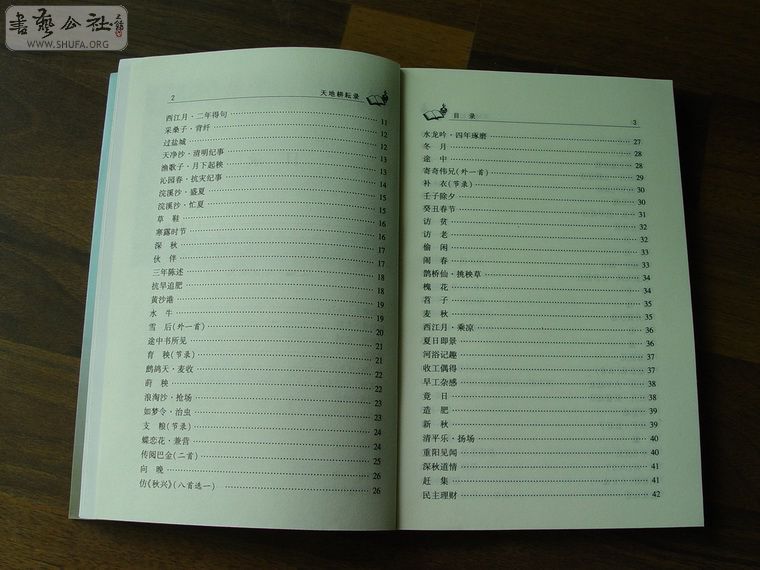 書藝公社
WWW.SHUFA.ORG
2 天地耕耘录
西江月·二年得句 11
采桑子·背纤 12
过盐城 12
天净沙·清明纪事 12
渔歌子·月下起秧 13
沁园春·抗灾纪事 14
浣溪沙·盛夏 15
浣溪沙·忙夏 15
草 鞋 16
寒露时节 16
深 秋 17
伙 伴 17
三年陈述 18
抗旱追肥 18
黄沙港 19
水 牛 19
雪 后(外一首) 20
途中书所见 21
育 秧(节录) 21
鹧鸪天·麦收 22
莳 秧 22
浪淘沙·抢场 23
如梦令·治虫 24
支 粮(节录) 24
蝶恋花·兼营 25
传阅巴金(二首) 25
向 晚 26
仿《秋兴》(八首选一) 26
目 录 3
水龙吟·四年琢磨 27
冬 月 28
途 中 28
寄奇伟兄(外一首) 29
补 衣(节录) 28
壬子除夕 30
癸丑春节 31
访 贫 32
访 老 32
偷 闲 33
闹 春 33
鹊桥仙·挑秧草 34
槐 花 34
苕 子 35
麦 秋 35
西江月·乘凉 36
夏日即景 36
河浴记趣 37
收工偶得 37
早工杂感 38
竟 日 38
造 肥 39
新 秋 39
清平乐·扬场 40
重阳见闻 40
深秋道情 41
赶 集 41
民主理财 42